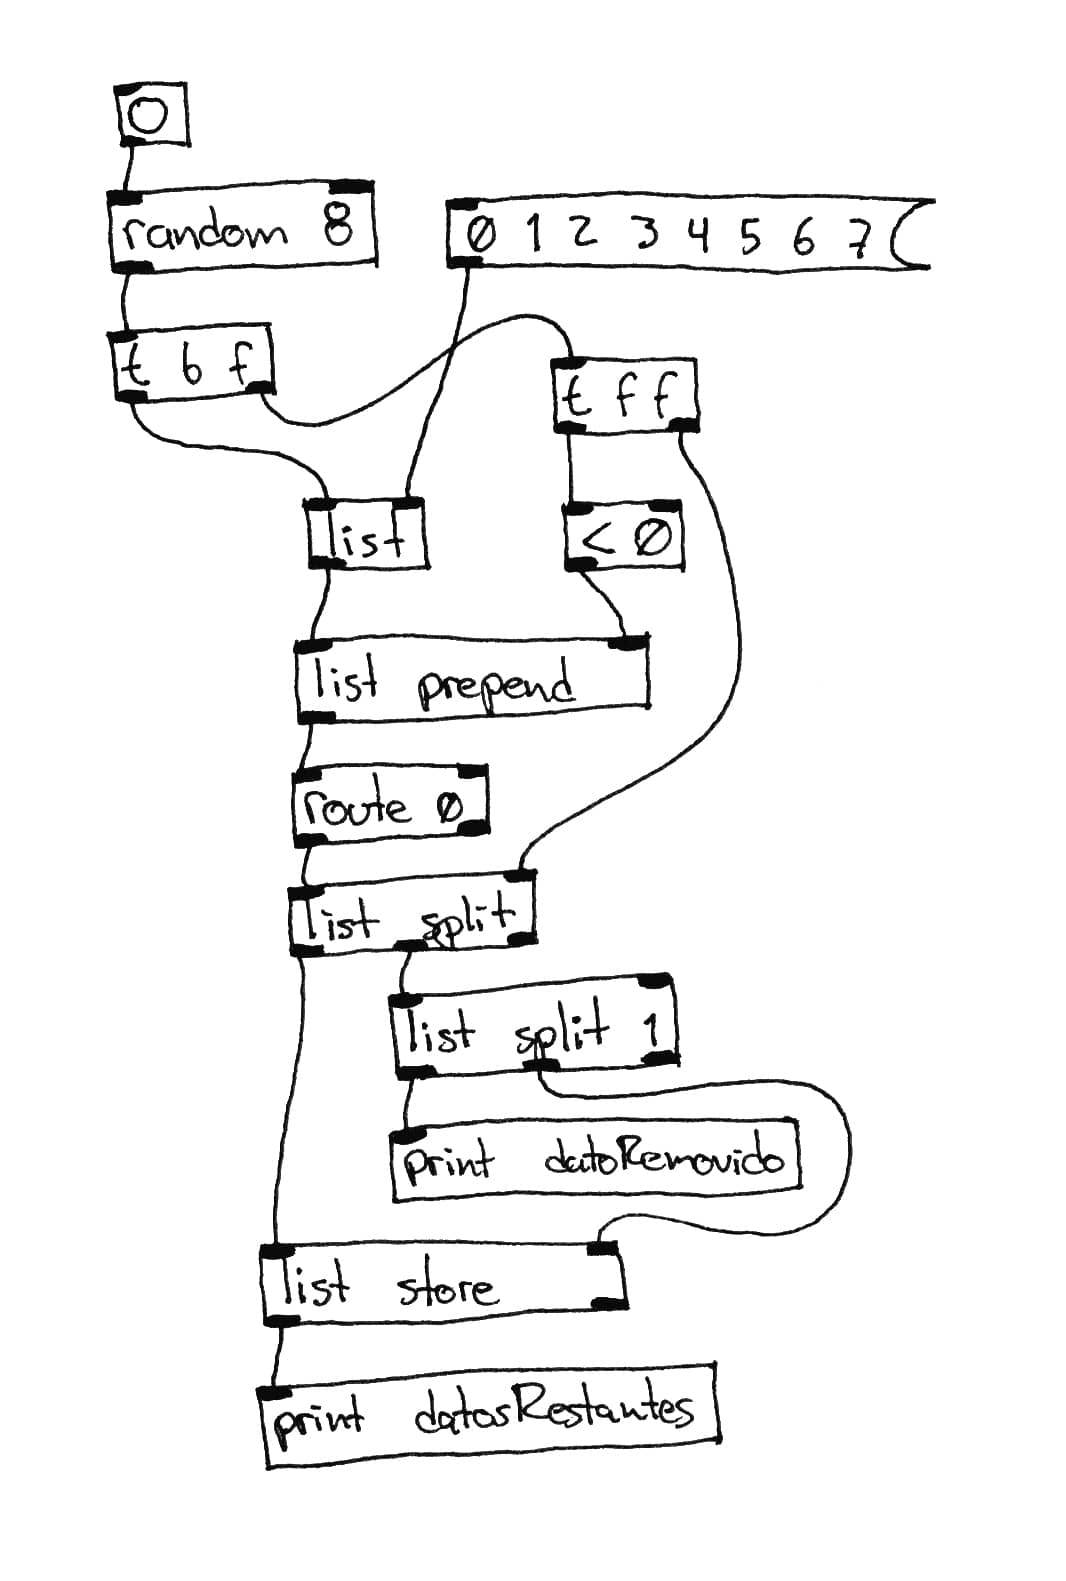 random 8
0 1 2 3 4 5 6 7
t b f
t f f
list
< 0
list prepend
route 0
list split
list split 1
print datoRemovido
list store
print datosRestantes